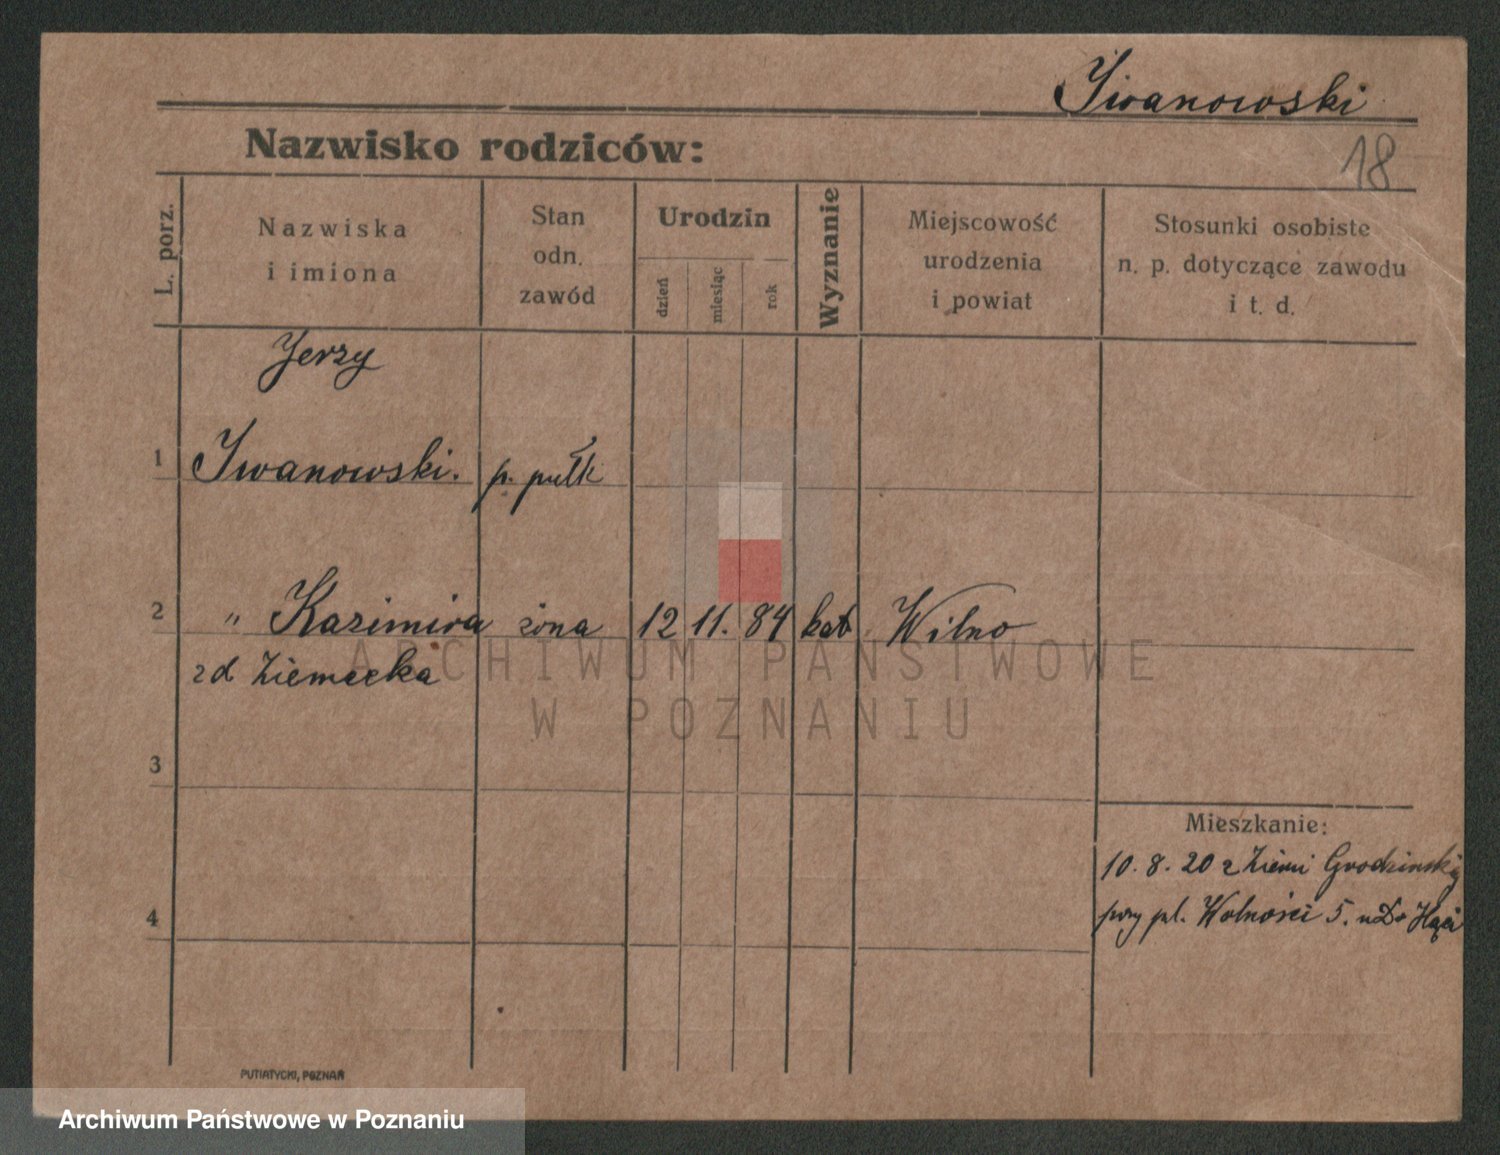 Iwanowski
Nazwisko rodziców:
18
L. porz.
Nazwiska
i imiona
Stan
odn.
zawód
Urodzin
dzień
miesiąc
rok
Wyznanie
Miejscowość
urodzenia
i powiat
Stosunki osobiste
n. p. dotyczące zawodu
i t. d.
Jerzy
1 Iwanowski. p. pułk
2 " Kazimira żona 12 11. 84 kat Wilno
zd Ziemecka
ARCHIWUM PAŃSTWOWE
W POZNANIU
3
Mieszkanie:
10. 8. 20 z Ziemi Grodzinskiej
przy pl. Wolności 5. u Dr
4
PUTIATYCKI, POZNAŃ
Archiwum Państwowe w Poznaniu